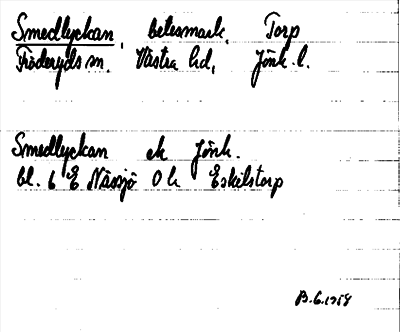 Smedlyckan, betesmark, Torp
Fröderyds sn. Västra hd, Jönk. l.
Smedlyckan ek Jönk.
bl. 6 E Nässjö Ok Eskilstorp
B.G. 1959